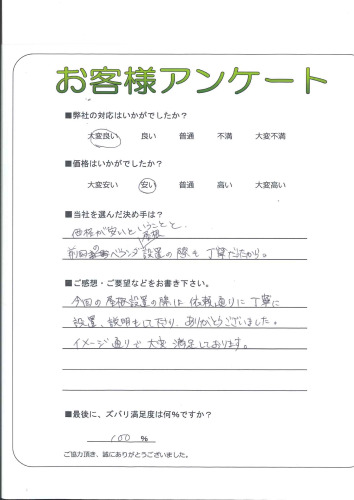 お客様アンケート
■弊社の対応はいかがでしたか?
大変良い 良い 普通 不満 大変不満
■価格はいかがでしたか?
大変安い 安い 普通 高い 大変高い
■当社を選んだ決め手は?
価格が安いということと、
屋根
前回のベランダ設置の際も丁寧だったから。
■ご感想・ご要望などをお書き下さい。
今回の屋根設置の際は依頼通りに丁寧に
設置、説明もして下さり、ありがとうございました。
イメージ通りで大変満足しております。
■最後に、ズバリ満足度は何%ですか?
100 %
ご協力頂き、誠にありがとうございました。